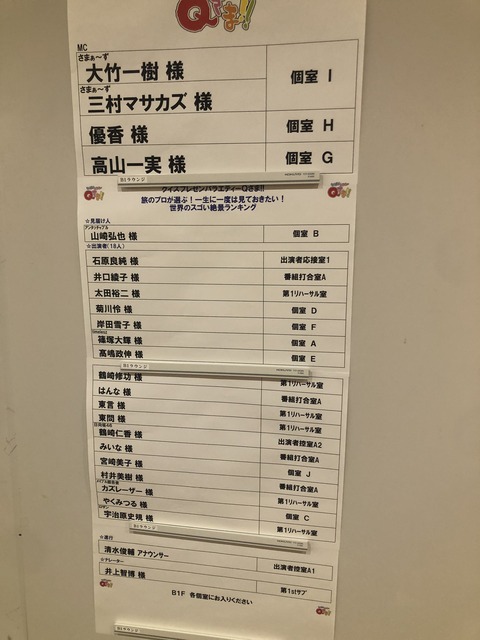 Qさま!!
MC
さまぁ～ず
大竹一樹 様
個室 I
さまぁ～ず
三村マサカズ 様
優香 様 個室 H
高山一実 様 個室 G
B1ラウンジ
クイズプレゼンバラエティーQさま!!
旅のプロが選ぶ！一生に一度は見ておきたい！
世界のスゴい絶景ランキング
☆見届け人
アンタッチャブル
山崎弘也 様 個室 B
☆出演者(18人)
石原良純 様 出演者応接室1
井口綾子 様 番組打合室A
太田裕二 様 第1リハーサル室
菊川怜 様 個室 D
岸田雪子 様 個室 F
篠塚大輝 様 個室 A
高嶋政伸 様 個室 E
B1ラウンジ
鶴崎修功 様 第1リハーサル室
はんな 様 番組打合室A
東言 様 第1リハーサル室
東問 様 第1リハーサル室
日向坂46
鶴崎仁香 様 出演者控室A2
みいな 様 番組打合室A
宮崎美子 様 個室 J
村井美樹 様 番組打合室A
メイプル超合金
カズレーザー 様 第1リハーサル室
やくみつる 様 個室 C
ロザン
宇治原史規 様 第1リハーサル室
B1ラウンジ
☆進行
清水俊輔 アナウンサー 出演者控室A1
☆ナレーター
井上智博 様 第1stサブ
B1F 各個室にお入りください
B1ラウンジ